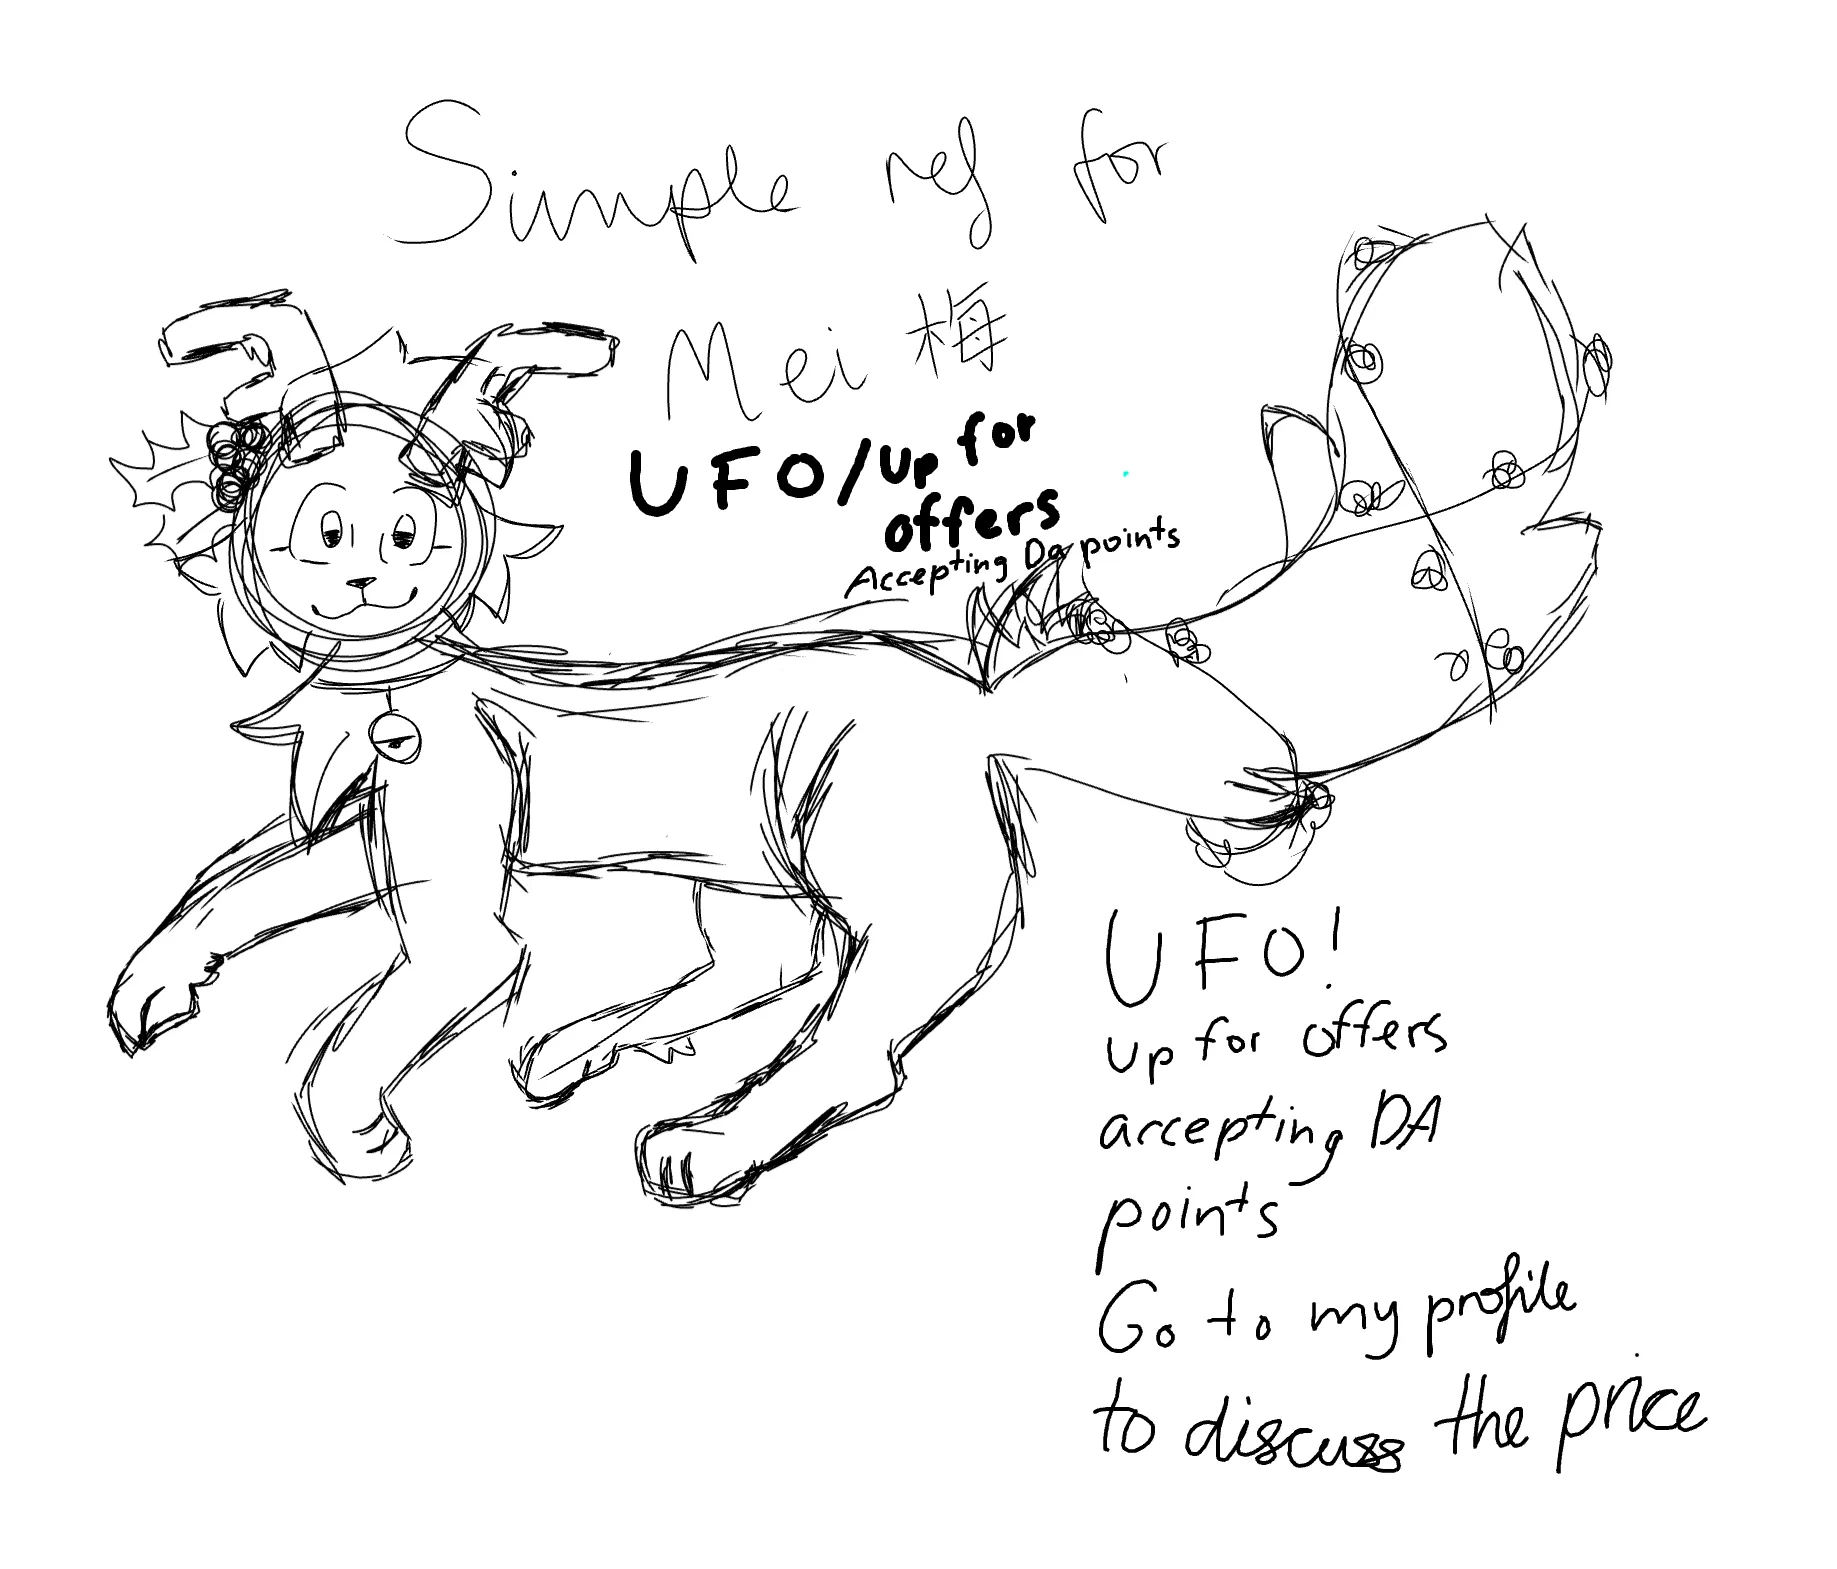 Simple ref for
Mei 梅
UFO/up for
offers
Accepting Da points
UFO!
up for offers
accepting DA
points
Go to my profile
to discuss the price